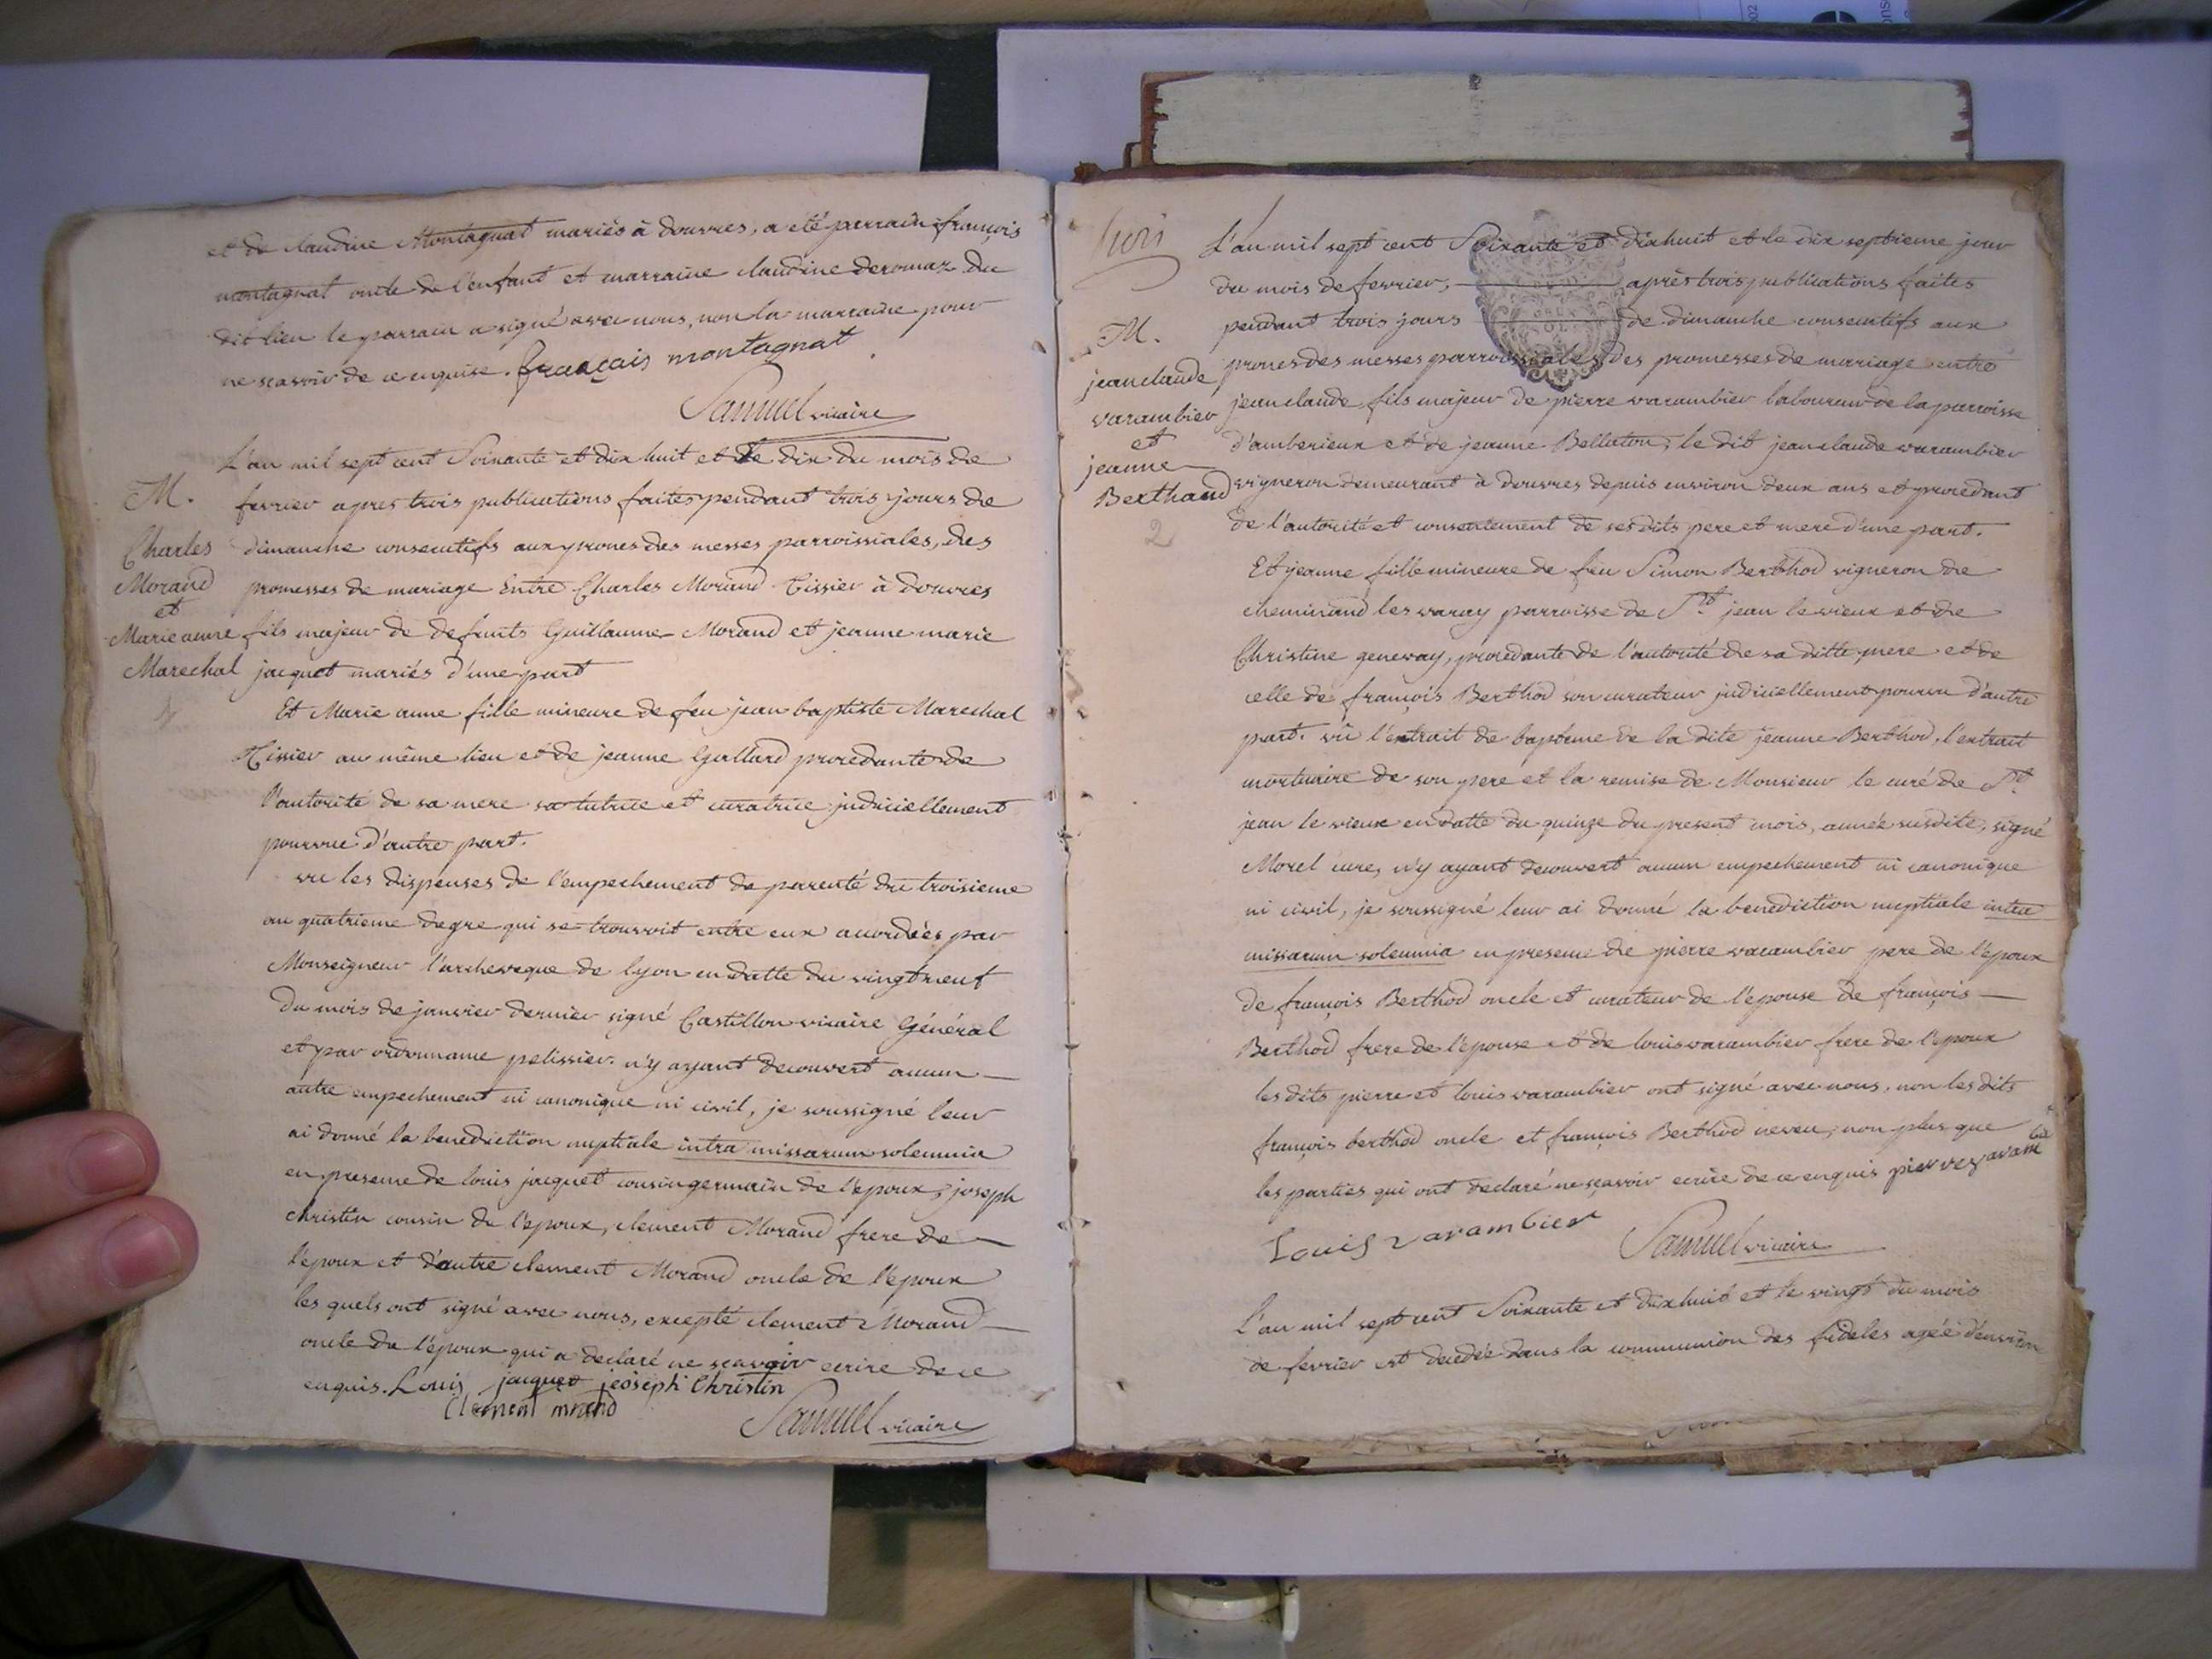 et de claudine Montagnat mariés à douvres, a eté parrain françois
montagnat oncle de l'enfant et marraine claudine deromaz du
dit lieu le parrain a signé avec nous, non la marraine pour
ne scavoir de ce enquise. françois montagnat
Samuel vicaire
L'an mil sept cent Soixante et dix huit et le dix du mois de
fevrier apres trois publications faites pendant trois jours de
dimanche consecutifs aux prones des messes parroissiales, des
promesses de mariage Entre Charles Morand Tissier à douvres
fils majeur de defunts Guillaume Morand et jeanne marie
jacquet mariés d'une part
M.
Charles
Morand
et
Marie anne
Marechal
Et Marie anne fille mineure de feu jean baptiste Marechal
Tissier au même lieu et de jeanne Gallard procedante de
l'autorité de sa mere sa tutrice et curatrice judiciellement
pourvue d'autre part.
vu les dispenses de l'empechement de parenté du troisieme
au quatrieme degre qui se trouvoit entre eux accordées par
Monseigneur l'archeveque de lyon en datte du vingt neuf
du mois de janvier dernier signé Castillon vicaire Général
et par ordonnance pelissier. n'y ayant decouvert aucun
autre empechement ni canonique ni civil, je soussigné leur
ai donné la benediction nuptiale intra missarum solemnia
en presence de louis jacquet cousin germain de l'epoux, joseph
christin cousin de l'epoux, clement Morand frere de
l'epoux et d'autre clement Morand oncle de l'epoux
les quels ont signé avec nous, excepté clement Morand
oncle de l'epoux qui a declaré ne scavoir ecrire de ce
enquis. Louis jacquet jeoseph Christin
Clement
Samuel vicaire
trois
L'an mil sept cent Soixante et dix huit et le dix septieme jour
du mois de fevrier, après trois publications faites
pendant trois jours de dimanche consecutifs aux
prones des messes parroissiales des promesses de mariage entre
jean claude fils majeur de pierre varambier laboureur de la parroisse
d'amberieux et de jeanne Bellaton, le dit jean claude varambier
vigneron demeurant à douvres depuis environ deux ans et procedant
de l'autorité et consentement de ses dits pere et mere d'une part.
M.
jean claude
varambier
et
jeanne
Berthaud
2
Et jeanne fille mineure de feu Simon Berthod vigneron de
cheminand les varay parroisse de St jean le vieux et de
Christine genevay, procedante de l'autorité de sa ditte mere et de
celle de françois Berthod son curateur judiciellement pourvu d'autre
part. vû l'extrait de bapteme de la dite jeanne Berthod, l'extrait
mortuaire de son pere et la remise de Monsieur le curé de St
jean le vieux en datte du quinze du present mois, année susdite, signé
Morel cure, n'y ayant decouvert aucun empechement ni canonique
ni civil, je soussigné leur ai donné la benediction nuptiale intra
missarum solemnia en presence de pierre varambier pere de l'epoux
de françois Berthod oncle et curateur de l'epouse de françois
Berthod frere de l'epouse et de louis varambier frere de l'epoux
les dits pierre et louis varambier ont signé avec nous, non les dits
françois berthod oncle et françois Berthod neveu, non plus que
les parties qui ont declaré ne sçavoir ecrire de ce enquis pierre
Louis varambier
Samuel vicaire
L'an mil sept cent Soixante et dix huit et le vingt du mois
de fevrier est decedée dans la communion des fideles agéé d'environ